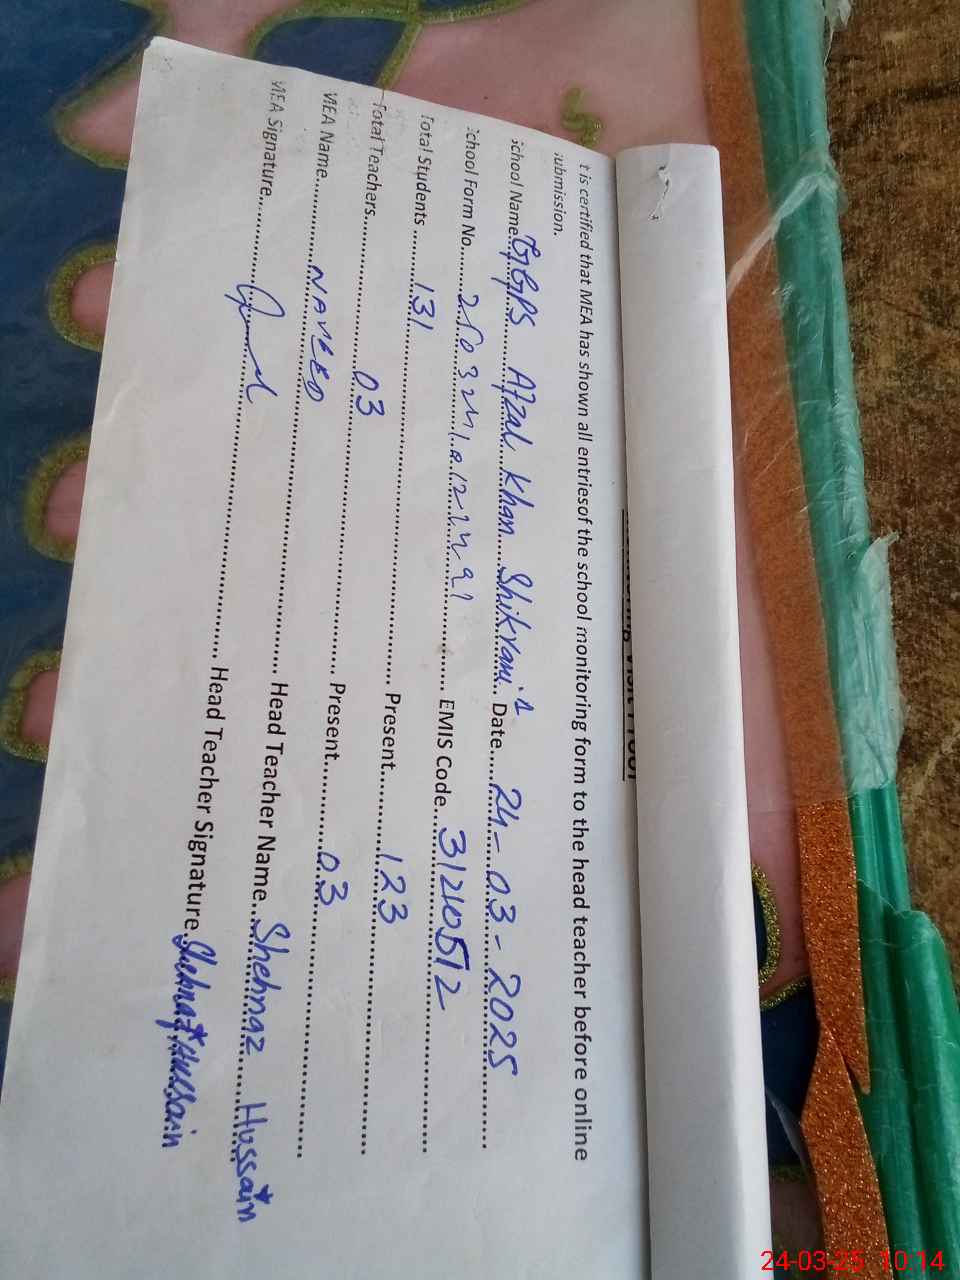 t is certified that MEA has shown all entriesof the school monitoring form to the head teacher before online
submission.
School Name GGPS Afzal Khan Shikrani Date 24-03-2025
School Form No. EMIS Code 31210512
Total Students 131 Present 123
Total Teachers 03 Present 03
MEA Name NAVEED Head Teacher Name Shehnaz Hussain
MEA Signature Head Teacher Signature Shehnaz Hussain
24-03-25 10:14